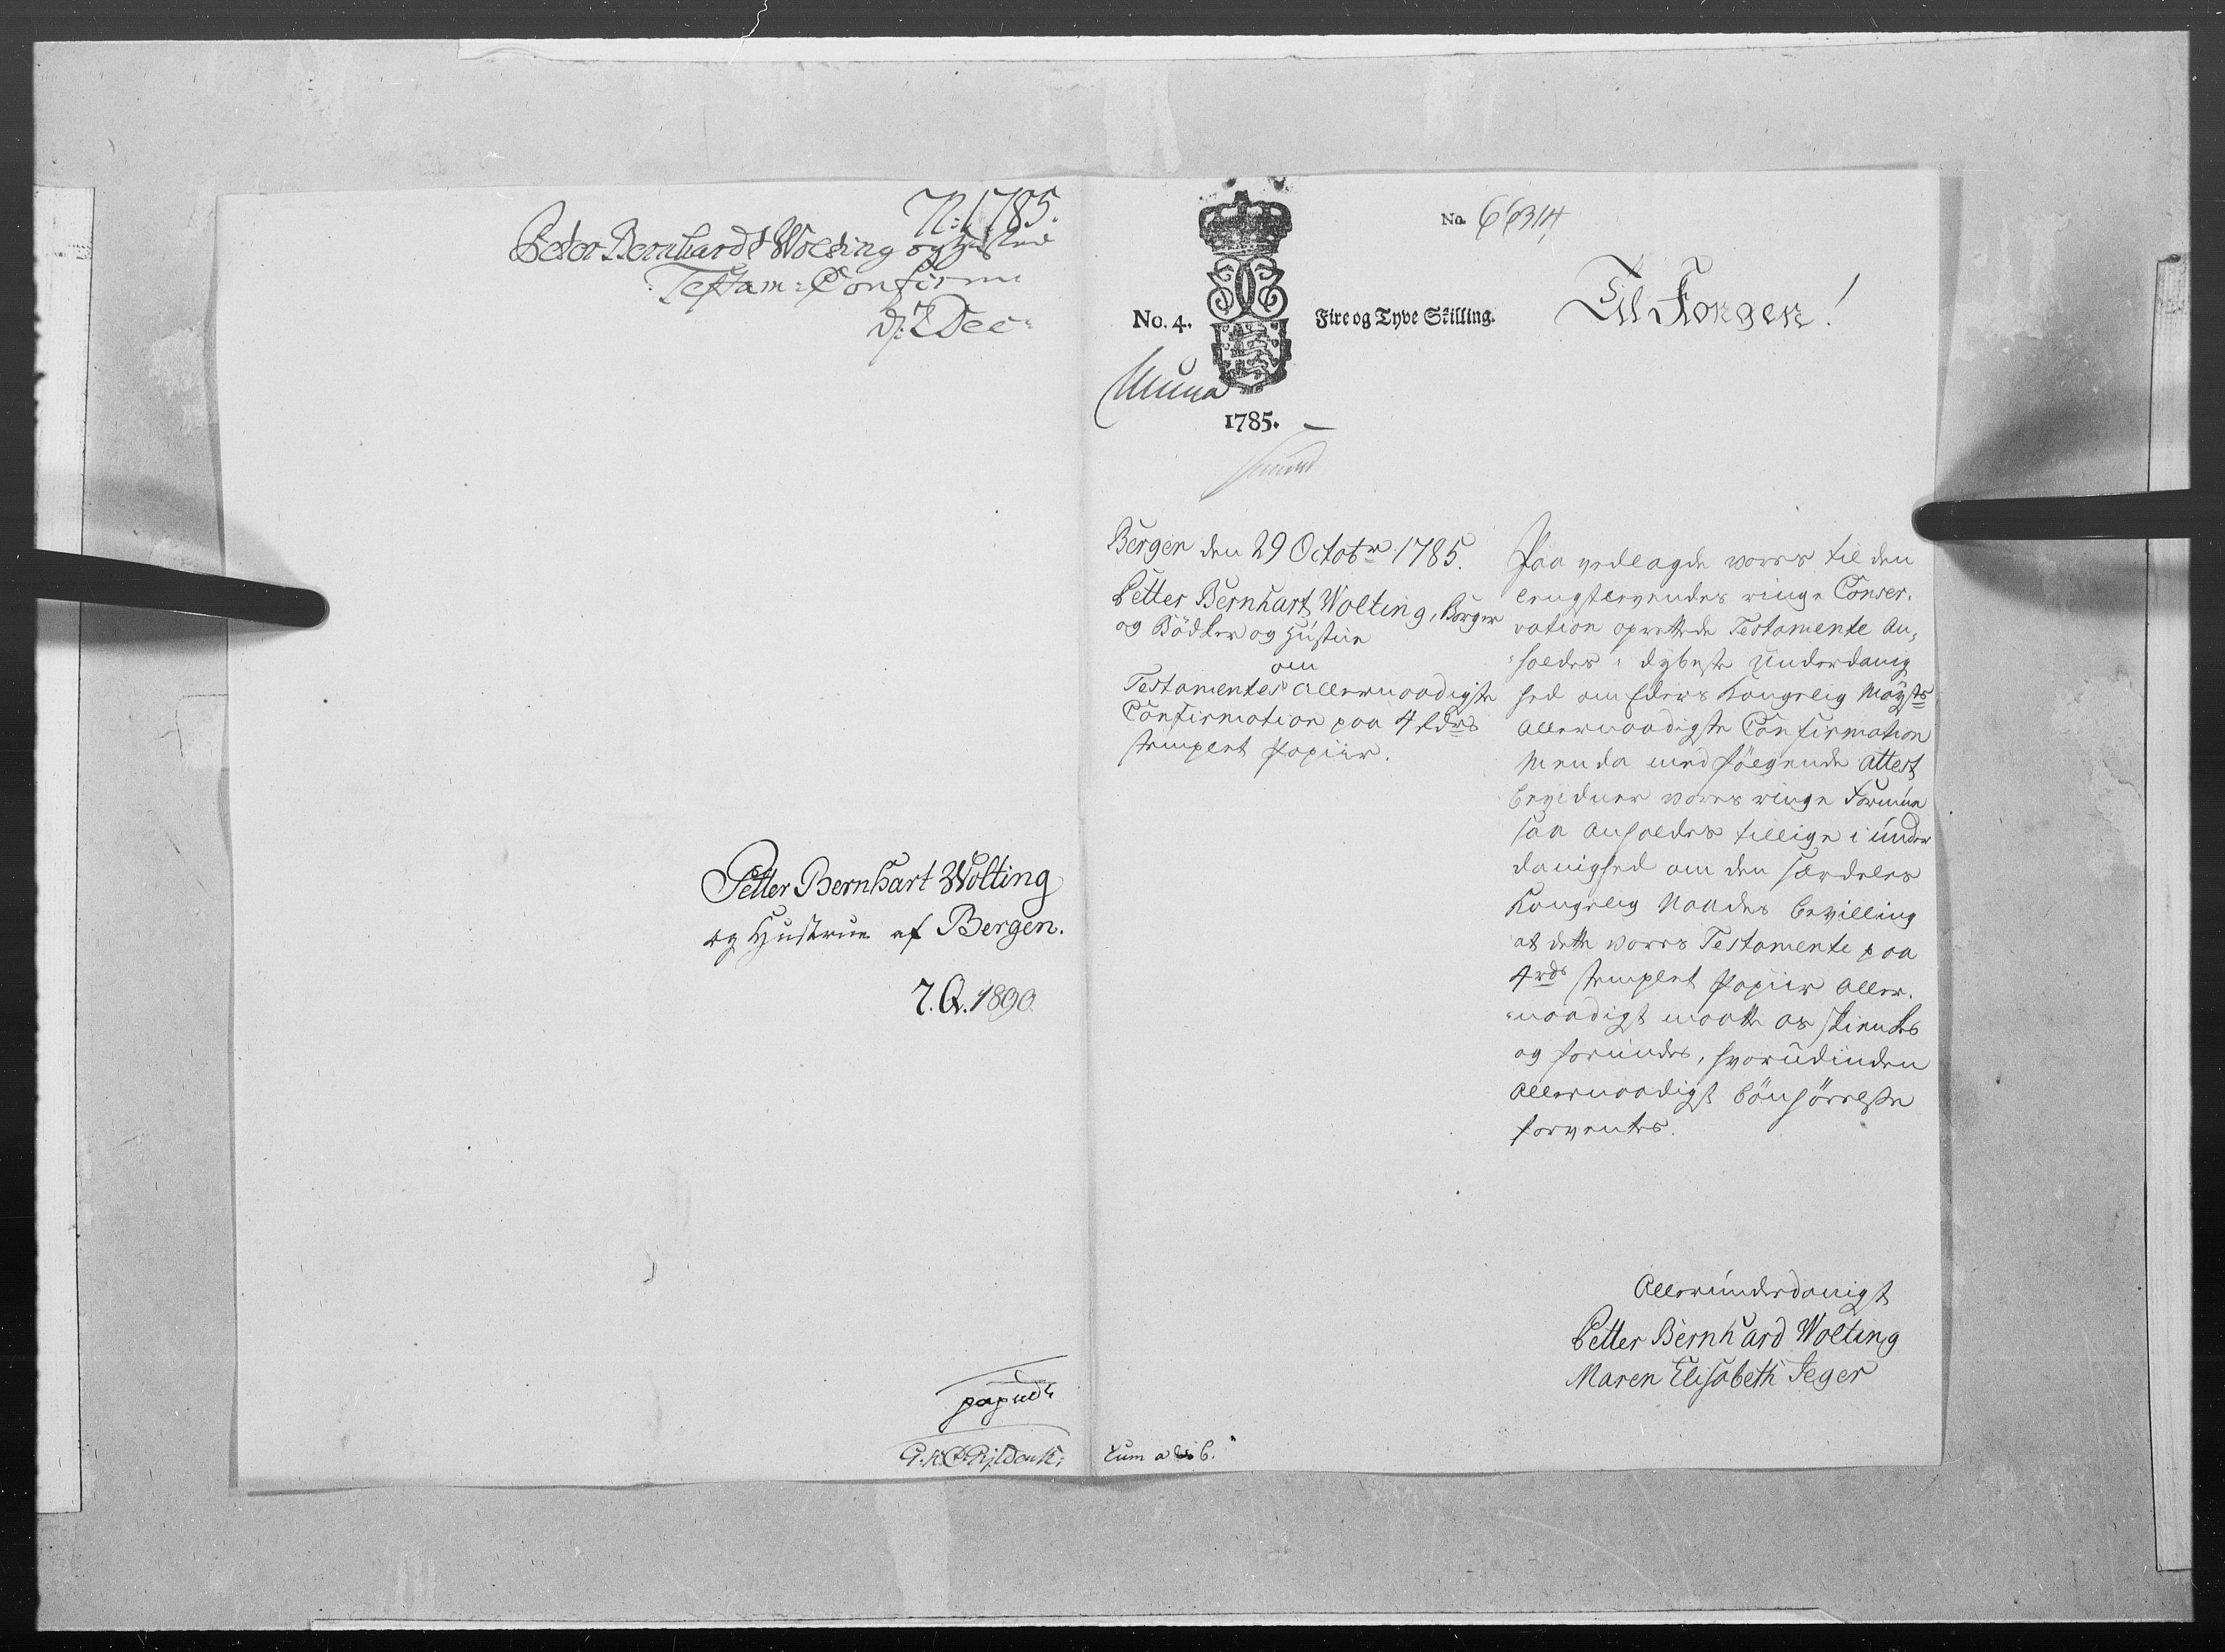 N: 1785.
Peter Bernhardt Wolting og Hustrue
Testam: Confirm
d: 2 Dec:
Petter Bernhart Wolting
og Hustrue af Bergen.
7. Q. 1890.
No. 66314
No. 4.
Fire og Tyve Skilling.
1785.
Til Kongen!
Bergen den 29 Octobr 1785.
Petter Bernhart Wolting, Borger
og Bödker og Hustue
om
Testamentes allernaadigste
Confirmation paa 4 rdrs
stemplet Papiir.
Paa vedlagde vores til den
lengstlevendes ringe Conser,
vation oprettede Testamente An,
holdes i dybeste Underdanig
hed om Eders Kongelig Mayts
allernaadigste Confirmation
Men da medfölgende Attest
bevidner vores ringe Formue
saa anholdes tillige i under
danighed om den særdeles
Kongelig Naades bevilling
at dette vores Testamente paa
4 rds stemplet Papiir aller,
naadigst maatte os skienkes
og forundes, hvorudinden
allernaadigst bönhörelse
forventes.
Allerunderdanigst
Petter Bernhard Wolting
Maren Elisabeth Jeger
Cum a b.